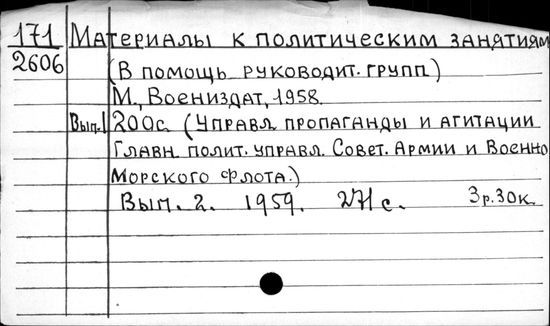 171 Материалы к политическим занятиям
2606 (В помощь руководит. групп.)
М., Воениздат, 1958.
Вып.1 200с. (Управл. пропаганды и агитации
Главн. полит. управл. Совет. Армии и Военно
Морского Флота.)
Вып. 2. 1959. 271 с. 3 р. 30 к.